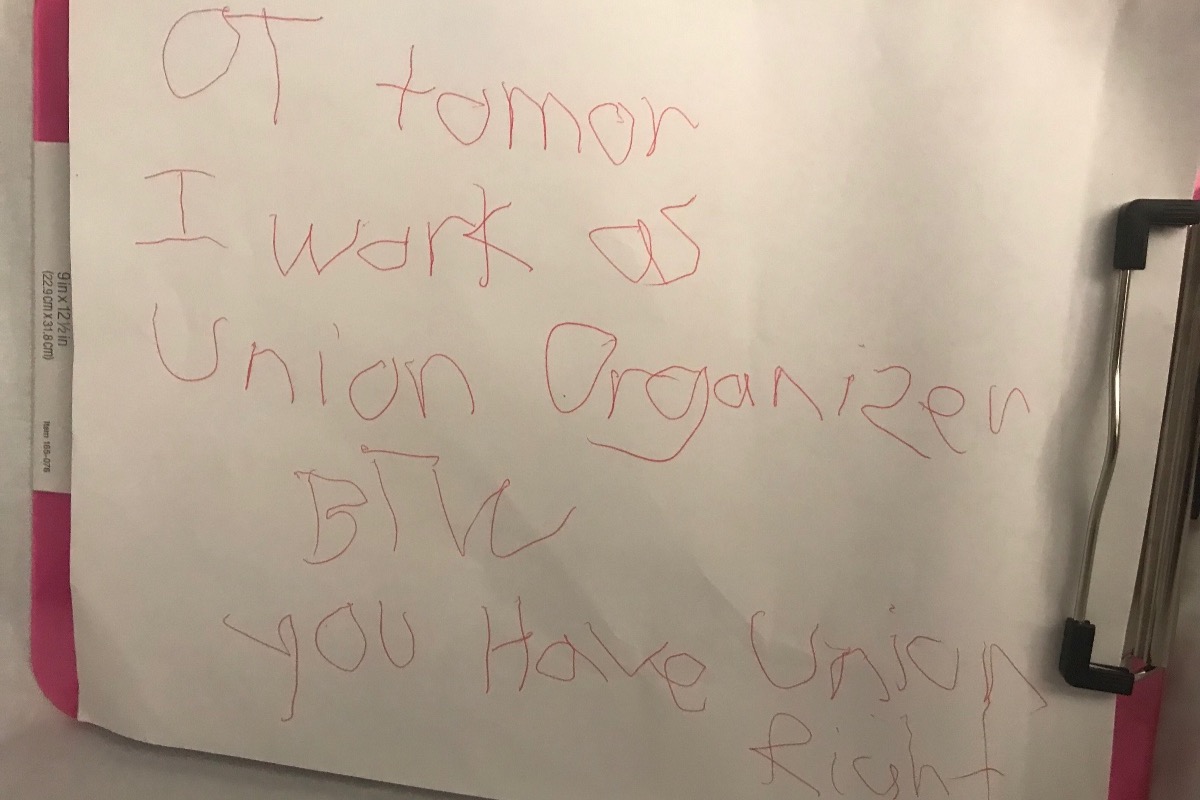 OT tomor
I work as
Union Organizer
BTW
you Have Union
Right
9 in x 12 ½ in
(22.9 cm x 31.8 cm)
Item 165-076